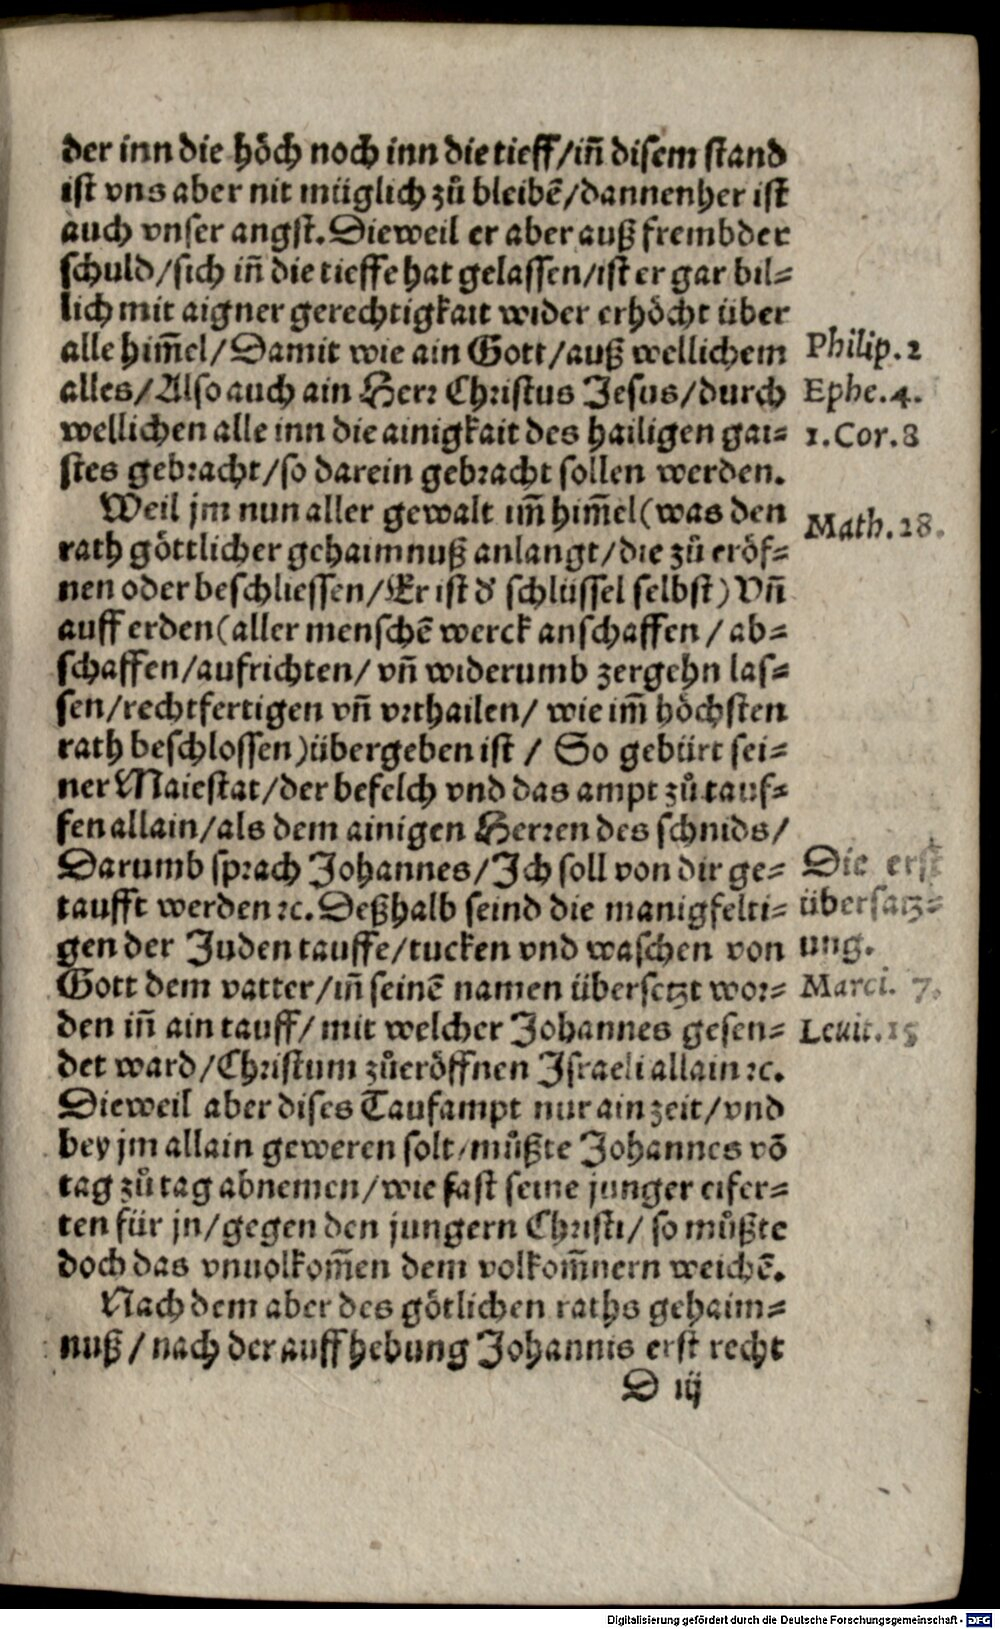 der inn die höch noch inn die tieff/iñ disem stand
ist vns aber nit müglich zů bleibẽ/dannenher ist
auch vnser angst. Dieweil er aber auß frembder
schuld/sich iñ die tieffe hat gelassen/ist er gar bil-
lich mit aigner gerechtigkait wider erhöcht über
alle him̃el/Damit wie ain Gott/auß wellichem
Philip. 2
alles/Also auch ain Herr Christus Jesus/durch
Ephe. 4.
wellichen alle inn die ainigkait des hailigen gai-
1. Cor. 8
stes gebracht/so darein gebracht sollen werden.
Weil jm nun aller gewalt im̃ him̃el (was den
Math. 28.
rath göttlicher gehaimnuß anlangt/die zů eröf-
nen oder beschliessen/Er ist d' schlüssel selbst) Vñ
auff erden (aller menschẽ werck anschaffen / ab-
schaffen/aufrichten/ vñ widerumb zergehn las-
sen/rechtfertigen vñ vrthailen/ wie im̃ höchsten
rath beschlossen) übergeben ist / So gebürt sei-
ner Maiestat/der befelch vnd das ampt zů tauf-
fen allain/als dem ainigen Herren des schnids/
Darumb sprach Johannes/Jch soll von dir ge-
Die erst
taufft werden ꝛc. Deßhalb seind die manigfelti-
übersatz-
gen der Juden tauffe/tucken vnd waschen von
ung.
Gott dem vatter/iñ seinẽ namen übersetzt wor-
Marci. 7.
den iñ ain tauff/ mit welcher Johannes gesen-
Leuit. 15
det ward/Christum zůeröffnen Israeli allain ꝛc.
Dieweil aber dises Taufampt nur ain zeit/vnd
bey jm allain geweren solt/můßte Johannes võ
tag zů tag abnemen/wie fast seine junger eifer-
ten für jn/gegen den jungern Christi/ so můßte
doch das vnuolkom̃en dem volkom̃nern weichẽ.
Nach dem aber des götlichen raths gehaim-
nuß / nach der auffhebung Johannis erst recht
D iij
Digitalisierung gefördert durch die Deutsche Forschungsgemeinschaft - DFG